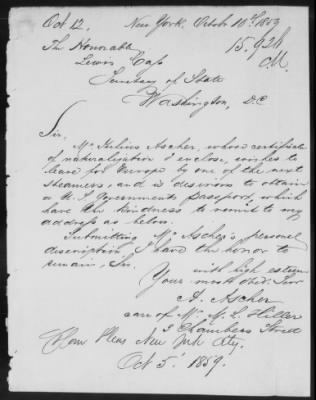 Oct 12.
New York, Octob 10th 1859
15.924
The Honorable
Lewis Cass
Secretary of State
Washington, D.C.
Sir,
Mr Julius Ascher, whose certificate
of naturalization I enclose, wishes to
leave for Europe by one of the next
steamers, and is desirous to obtain
a U.S. Government passport, which
have the kindness to remit to my
address as below.
Submitting Mr Ascher's personal
description I have the honor to
remain, Sir,
with high esteem
Your most obed. Serv
A. Ascher
care of Mr. M. L. Hiller
3 Chambers Street
New York City.
Oct 5' 1859.